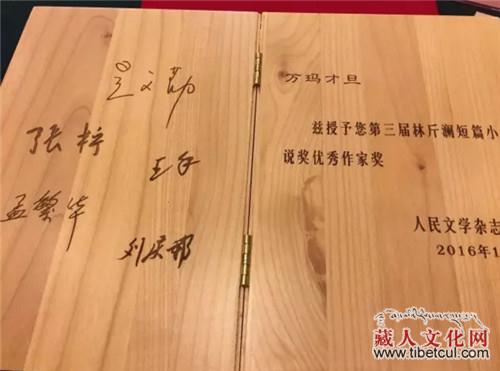 吴义勤
张柠
王手
孟繁华
刘庆邦
万玛才旦
兹授予您第三届林斤澜短篇小
说奖优秀作家奖
人民文学杂志
2016年1
藏人文化网
www.tibetcul.com